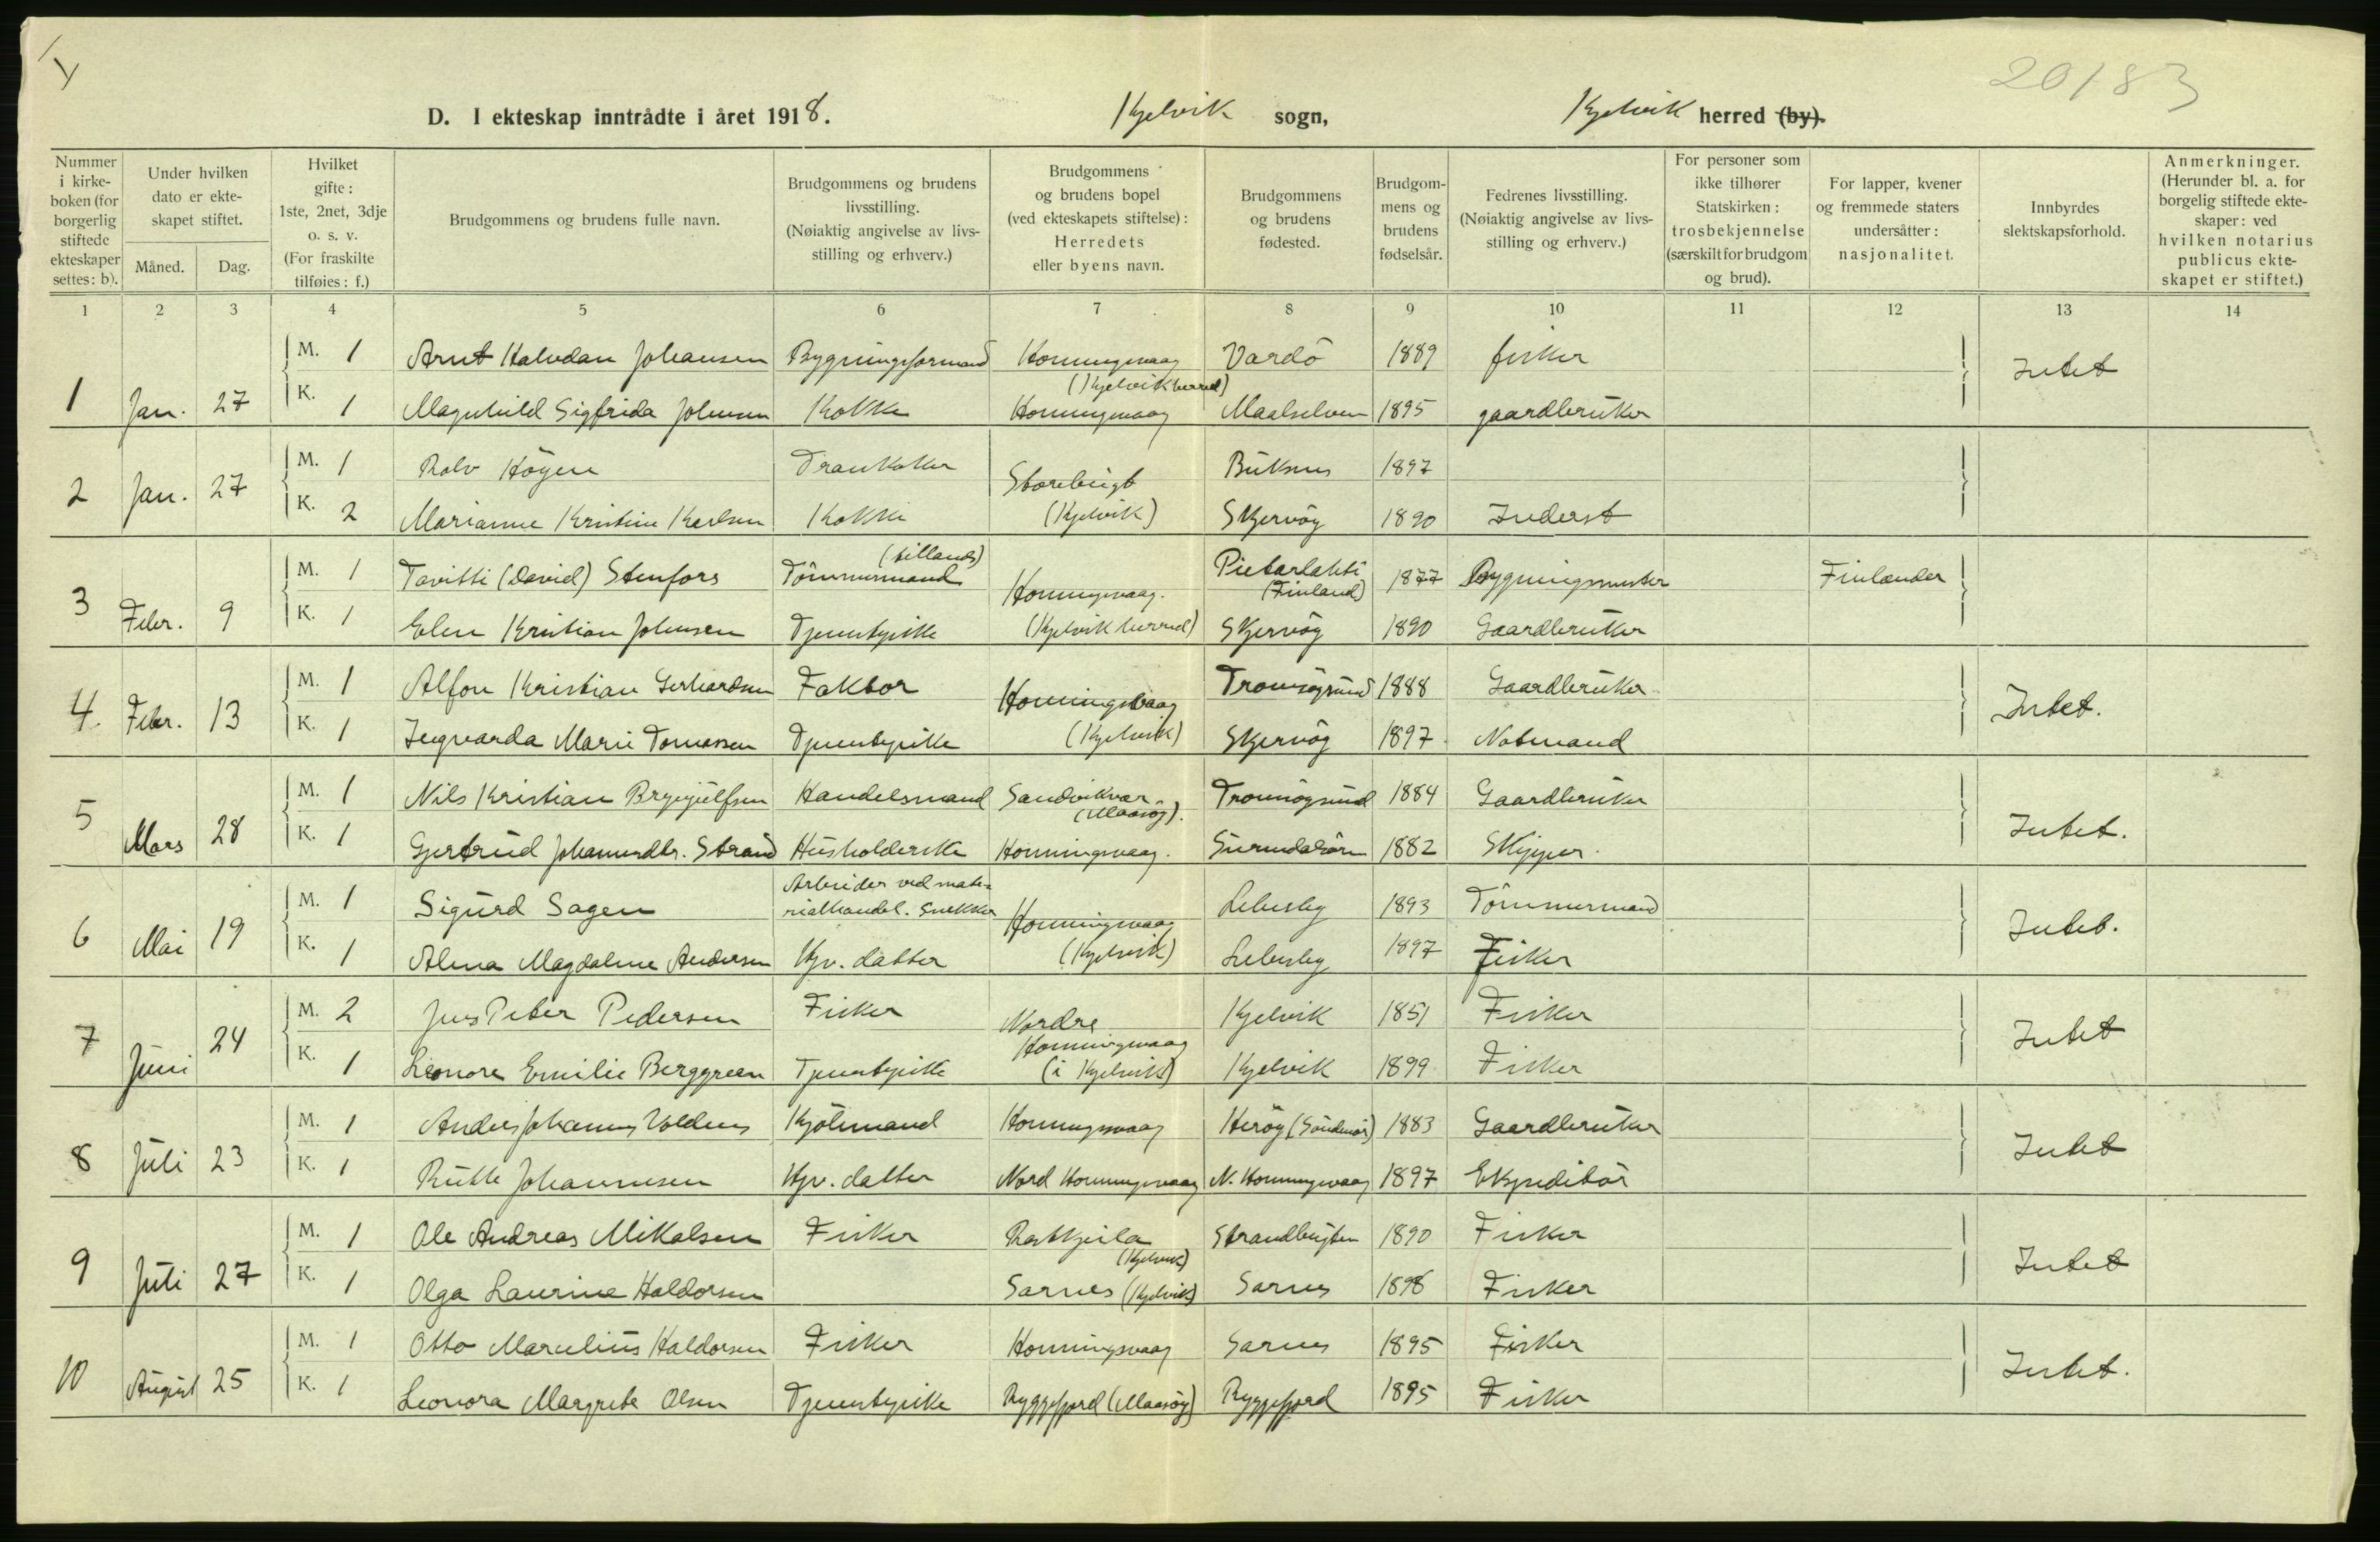 20183
D. I ekteskap inntrådte i året 1918. Kjelvik sogn, Kjelvik herred (by).
Nummer i kirkeboken (for borgerlig stiftede ekteskaper settes: b).
Under hvilken dato er ekteskapet stiftet.
Måned. Dag.
Hvilket gifte: 1ste, 2net, 3dje o. s. v. (For fraskilte tilføies: f.)
Brudgommens og brudens fulle navn.
Brudgommens og brudens livsstilling. (Nøiaktig angivelse av livsstilling og erhverv.)
Brudgommens og brudens bopel (ved ekteskapets stiftelse): Herredets eller byens navn.
Brudgommens og brudens fødested.
Brudgommens og brudens fødselsår.
Fedrenes livsstilling. (Nøiaktig angivelse av livsstilling og erhverv.)
For personer som ikke tilhører Statskirken: trosbekjennelse (særskilt for brudgom og brud).
For lapper, kvener og fremmede staters undersåtter: nasjonalitet.
Innbyrdes slektskapsforhold.
Anmerkninger. (Herunder bl. a. for borgelig stiftede ekteskaper: ved hvilken notarius publicus ekteskapet er stiftet.)
1 2 3 4 5 6 7 8 9 10 11 12 13 14
M. 1 Arnt Halvdan Johansen Bygningsformand Honningsvaag Vardö 1889 fisker
(Kjelvik herred)
1 Jan. 27 K. 1 Magnhild Sigfrida Johnsen Kokke Honningsvaag Maalselven 1895 gaardbruker Intet
M. 1 Rolv Höyen Trankoker Storebugt Buksnes 1897
2 Jan. 27 K. 2 Marianne Kristine Karlsen Kokke (Kjelvik) Skjervöy 1890 Inderst
M. 1 Tavitti (David) Stenfors (tillands) Tömmermand Honningsvaag. Pietarlahti (Finland) 1877 Bygningsmester Finlænder
3 Febr. 9 K. 1 Elen Kristian Johnsen Tjenestepike (Kjelvik herred) Skjervöy 1890 Gaardbruker
M. 1 Alfon Kristian Gerhardsen Faktor Honningsvaag Tromsöysund 1888 Gaardbruker
4. Febr. 13 K. 1 Ingvarda Marie Tomassen Tjenestepike (Kjelvik) Skjervöy 1897 Notmand Intet.
M. 1 Nils Kristian Brynjulfsen Handelsmand Sandvikvær (Maasöy). Tromsöysund 1884 Gaardbruker
5 Mars 28 K. 1 Gjertrud Johannesdtr. Strand Husholderske Honningsvaag. Surendalsören 1882 Skipper. Intet.
M. 1 Sigurd Sagen Arbeider ved materialhandel. Snekker Honningsvaag Lebesby 1893 Tömmermand
6 Mai 19 K. 1 Alma Magdalene Andersen Hjv. datter (Kjelvik) Lebesby 1897 Fisker Intet.
M. 2 Jens Peter Pedersen Fisker Nordre Honningsvaag Kjelvik 1851 Fisker
7 Juni 24 K. 1 Leonore Emilie Berggreen Tjenestepike (i Kjelvik) Kjelvik 1899 Fisker Intet
M. 1 Anders Johannes Voldnes Kjölemand Honningsvaag Heröy (Söndmör) 1883 Gaardbruker
8 Juli 23 K. 1 Ruth Johannesen Hjv. datter Nord Honningsvaag N. Honningsvaag 1897 Ekspeditör Intet
M. 1 Ole Andreas Mikalsen Fisker (Kjelvik) Strandbugten 1890 Fisker
9 Juli 27 K. 1 Olga Laurine Haldorsen Sarnes (Kjelvik) Sarnes 1898 Fisker Intet
M. 1 Otto Marcelius Haldorsen Fisker Honningsvaag Sarnes 1895 Fisker
10 August 25 K. 1 Leonora Margrete Olsen Tjenestepike Ryggefjord (Maasöy) Ryggefjord 1895 Fisker Intet.